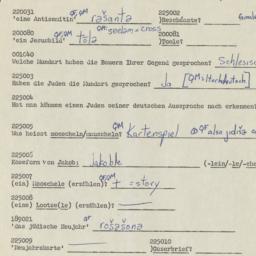 220031 225002
'eine Antisemitin' rašanta )Beschdante?
220080 200081
'ein Jerusbild' tōlə )Toole?
001040
Welche Mundart haben die Bauern Ihrer Gegend gesprochen? Schlesisch
225003
Haben die Juden die Mundart gesprochen? Ja [QM: Hochdeutsch]
225004
Hat man können einen Juden seiner deutschen Aussprache nach erkennen?
225005
Was heisst mosscheln/mauscheln? Kartenspiel also jüdiš
225006
Koseform von Jakob: Jakoble (-lein/-le/-che
225007
(ein) Moschele (erzählen)? + =story
225008
(eine) Lootze(le) (erzählen)?
189021
'das jüdische Neujahr' rošašona
225009 225010
'Neujahrskarte' )Guserbrief?